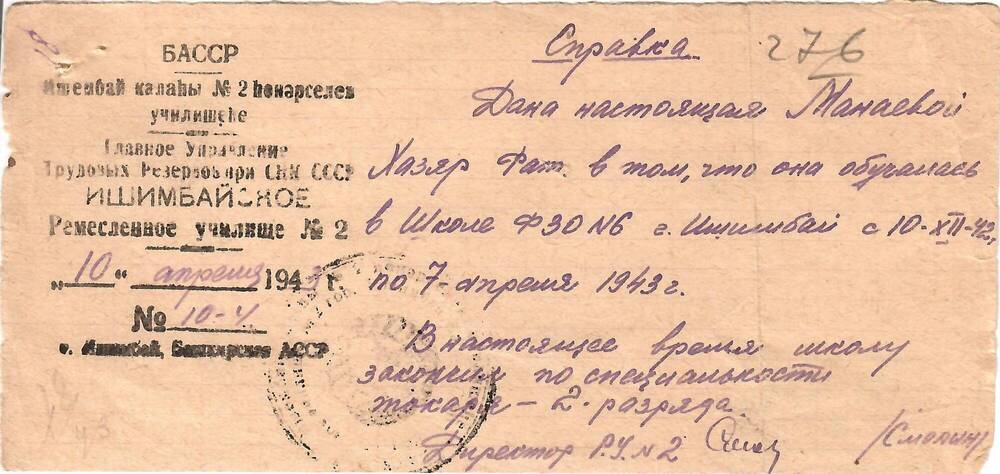 БАССР
Ишембай калаһы № 2 һөнәрселек
училищеһе
Главное Управление
Трудовых Резервов при СНК СССР
ИШИМБАЙСКОЕ
Ремесленное училище № 2
„10" апреля 1943 г.
№ 10-4
г. Ишимбай, Башкирская АССР
276
Справка
Дана настоящая Манаевой
Хазяр Фат. в том, что она обучалась
в Школе ФЗО N6 г. Ишимбай с 10-XII-42г.
по 7-апреля 1943 г.
В настоящее время школу
закончил по специальности
токаря - 2-разряда.
Директор Р.У. N 2